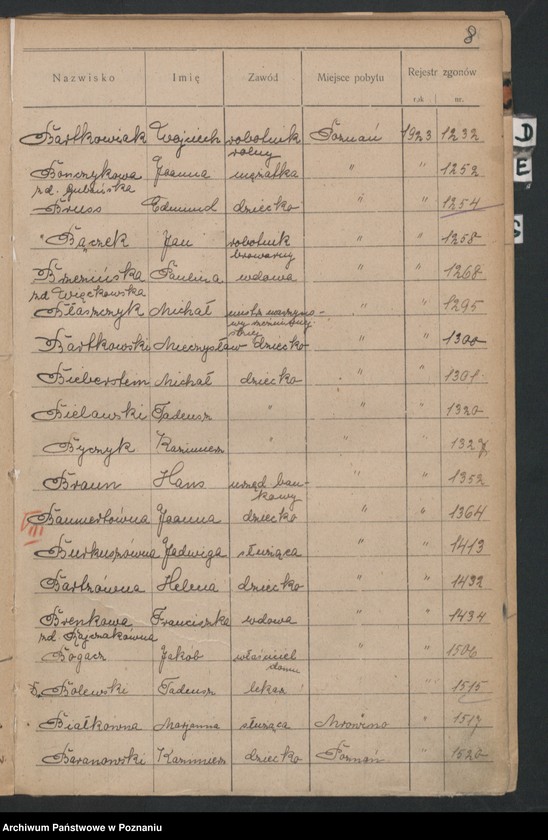 8
Nazwisko Imię Zawód Miejsce pobytu Rejestr zgonów
rok nr.
Bartkowiak Wojciech robotnik Poznań 1923 1232
rolny
Bonczykowa Joanna mężatka " " 1252
zd. Gubińska
Bruss Edmund dziecko " " 1254
Bączek Jan robotnik " " 1258
browarny
Brzezińska Paulina wdowa " " 1268
zd Więckowska
Błaszczyk Michał " " 1295
Bartkowski Mieczysław dziecko " " 1300
Bieberstein Michał dziecko " " 1301
Bielawski Tadeusz " " " 1320
Byczyk Kazimierz " " " 1327
Braun Hans urzęd. ban- " " 1352
kowy
VIII
Baumertówna Joanna dziecko " " 1364
Jadwiga służąca " " 1413
Helena dziecko " " 1432
Franciszka wdowa " " 1434
zd. Rajczakówna
Bogacz Jakób właściciel " " 1506
domu
Bolewski Tadeusz lekarz " " 1515
Białkówna Marjanna służąca Mrowino " 1517
Baranowski Kazimierz dziecko Poznań " 1520
D
E
Archiwum Państwowe w Poznaniu